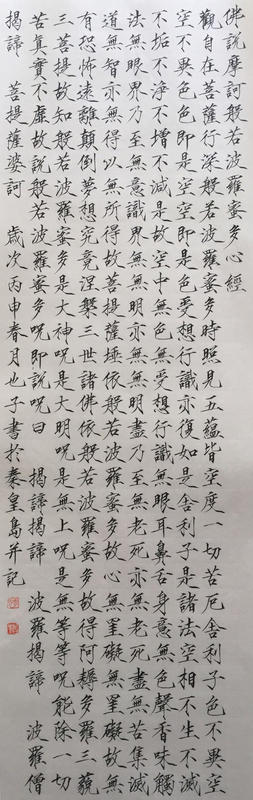 佛說摩訶般若波羅蜜多心經
觀自在菩薩行深般若波羅蜜多時照見五蘊皆空度一切苦厄舍利子色不異空
空不異色色即是空空即是色受想行識亦復如是舍利子是諸法空相不生不滅
不垢不淨不增不減是故空中無色無受想行識無眼耳鼻舌身意無色聲香味觸
法無眼界乃至無意識界無無明亦無無明盡乃至無老死亦無老死盡無苦集滅
道無智亦無得以無所得故菩提薩埵依般若波羅蜜多故心無罣礙無罣礙故無
有恐怖遠離顛倒夢想究竟涅槃三世諸佛依般若波羅蜜多故得阿耨多羅三藐
三菩提故知般若波羅蜜多是大神咒是大明咒是無上咒是無等等咒能除一切
苦真實不虛故說般若波羅蜜多咒即說咒曰 揭諦揭諦 波羅揭諦 波羅僧
揭諦 菩提薩婆訶 歲次丙申春月也子書於秦皇島并記